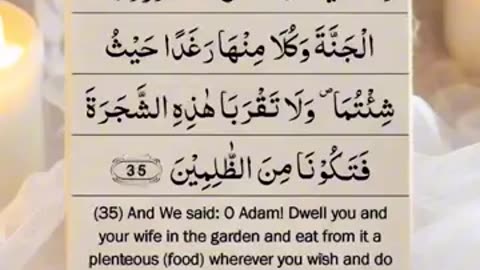 الْجَنَّةَ وَكُلَا مِنْهَا رَغَدًا حَيْثُ
شِئْتُمَا ۪ وَلَا تَقْرَبَا هٰذِهِ الشَّجَرَةَ
فَتَكُوْنَا مِنَ الظّٰلِمِيْنَ 35
(35) And We said: O Adam! Dwell you and
your wife in the garden and eat from it a
plenteous (food) wherever you wish and do